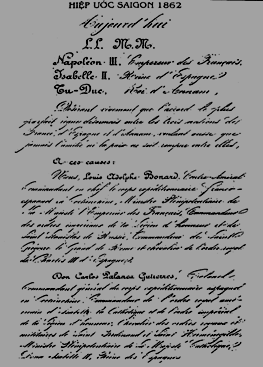 HIỆP ƯỚC SAIGON 1862
Aujourd'hui
L.L. M.M.
Napoléon III. Empereur des Français,
Isabelle II. Reine d'Espagne,
Tu-Duc, Roi d'Annam,
Désirant vivement que l'accord le plus
parfait règne désormais entre les trois nations de
France, d'Espagne et d'Annam, voulant aussi que
jamais l'amitié ni la paix ne soit rompue entre elles,
A ces causes:
Nous, Louis Adolphe Bonard, Contre-Amiral
Commandant en chef le corps expéditionnaire Franco-
espagnol en Cochinchine, Ministre Plénipotentiaire de
S. M. l'Empereur des Français, Commandant
des ordres de la Légion d'honneur et de
Saint Stanislas de Russie, Commandeur de Saint
Grégoire le Grand de Rome et chevalier de l'ordre royal
de Charles III d'Espagne;
Don Carlos Palanca Gutierrez, Colonel
Commandant général du corps expéditionnaire espagnol
en Cochinchine, Commandeur de l'ordre royal amé-
ricain d'Isabelle la Catholique et de l'ordre impérial
de la Légion d'honneur, Chevalier des ordres royaux et
militaires de Saint Ferdinand et Saint Herménégilde,
Ministre Plénipotentiaire de Sa Majesté Catholique,
Dona Isabelle II, Reine des Espagnes